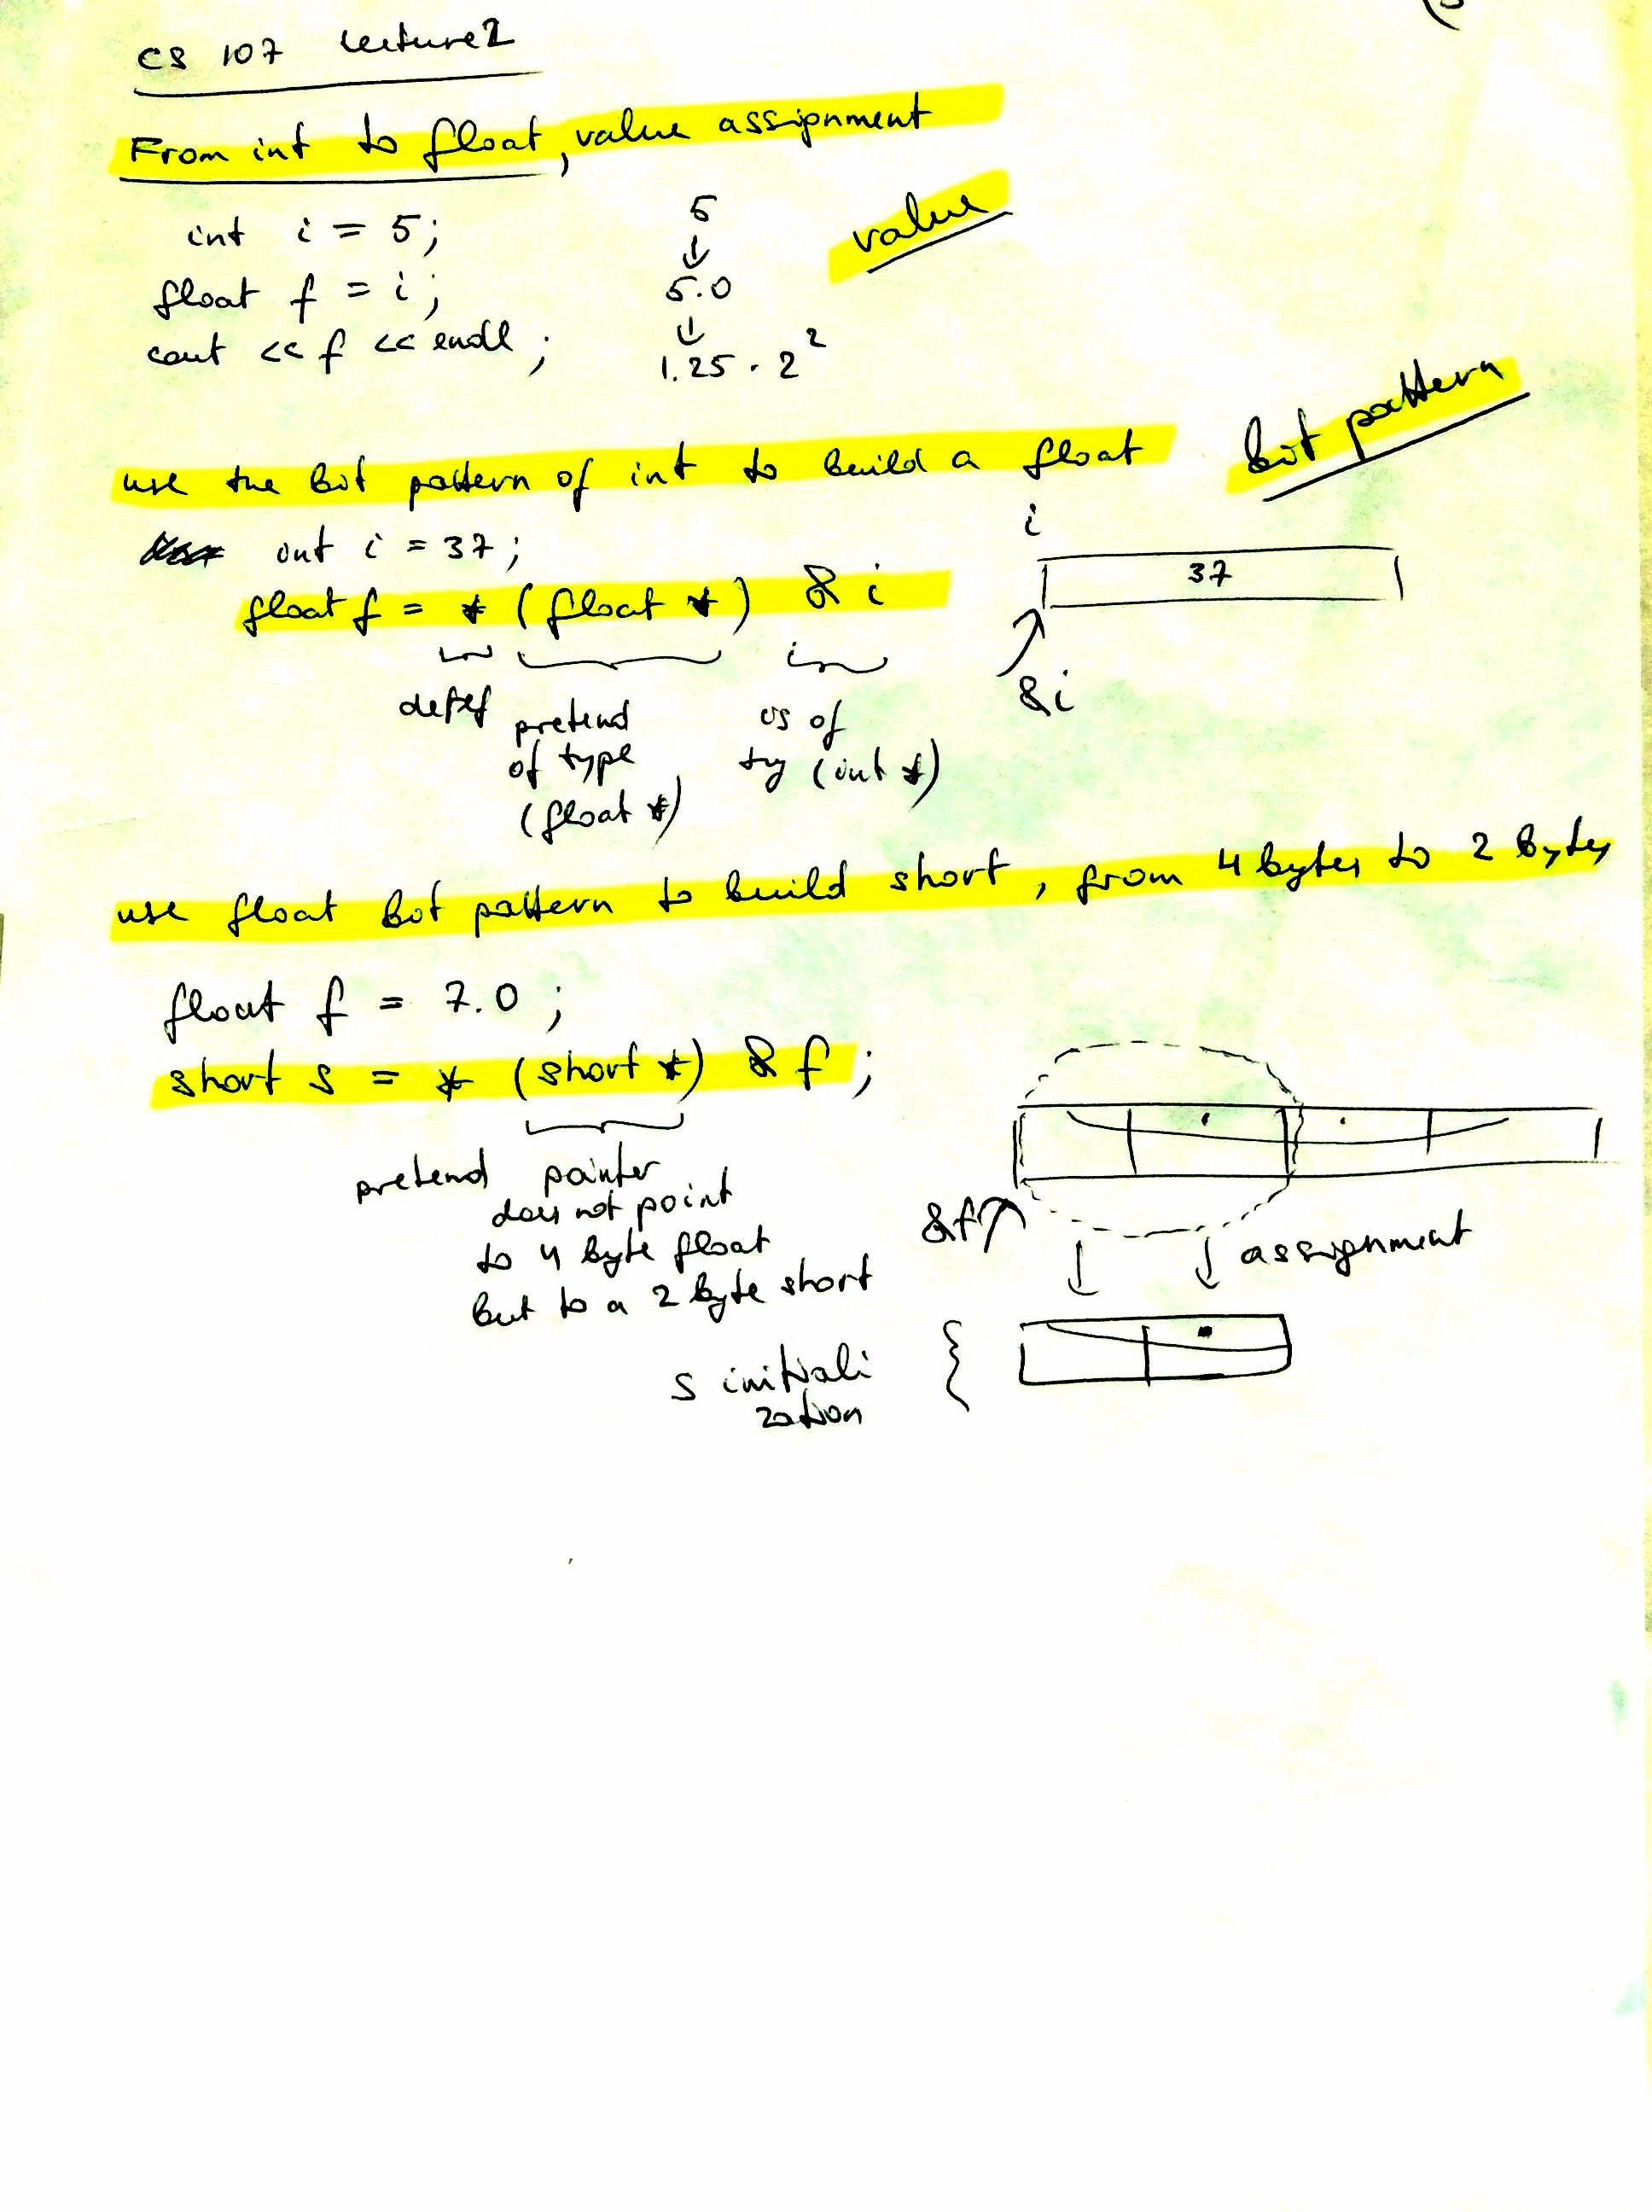 CS 107 Lecture 2
From int to float, value assignment
int i = 5;
float f = i;
cout << f << endl ;
5
↓
5.0
↓
1.25 . 2²
value
use the bit pattern of int to build a float
bit pattern
int i = 37;
float f = * (float *) & i
deref
pretend
of type
(float *)
is of
ty (int *)
i
37
&i
use float bit pattern to build short, from 4 bytes to 2 bytes
float f = 7.0 ;
short s = * (short *) & f ;
pretend pointer
does not point
to 4 byte float
but to a 2 byte short
&f
assignment
s initiali
zation